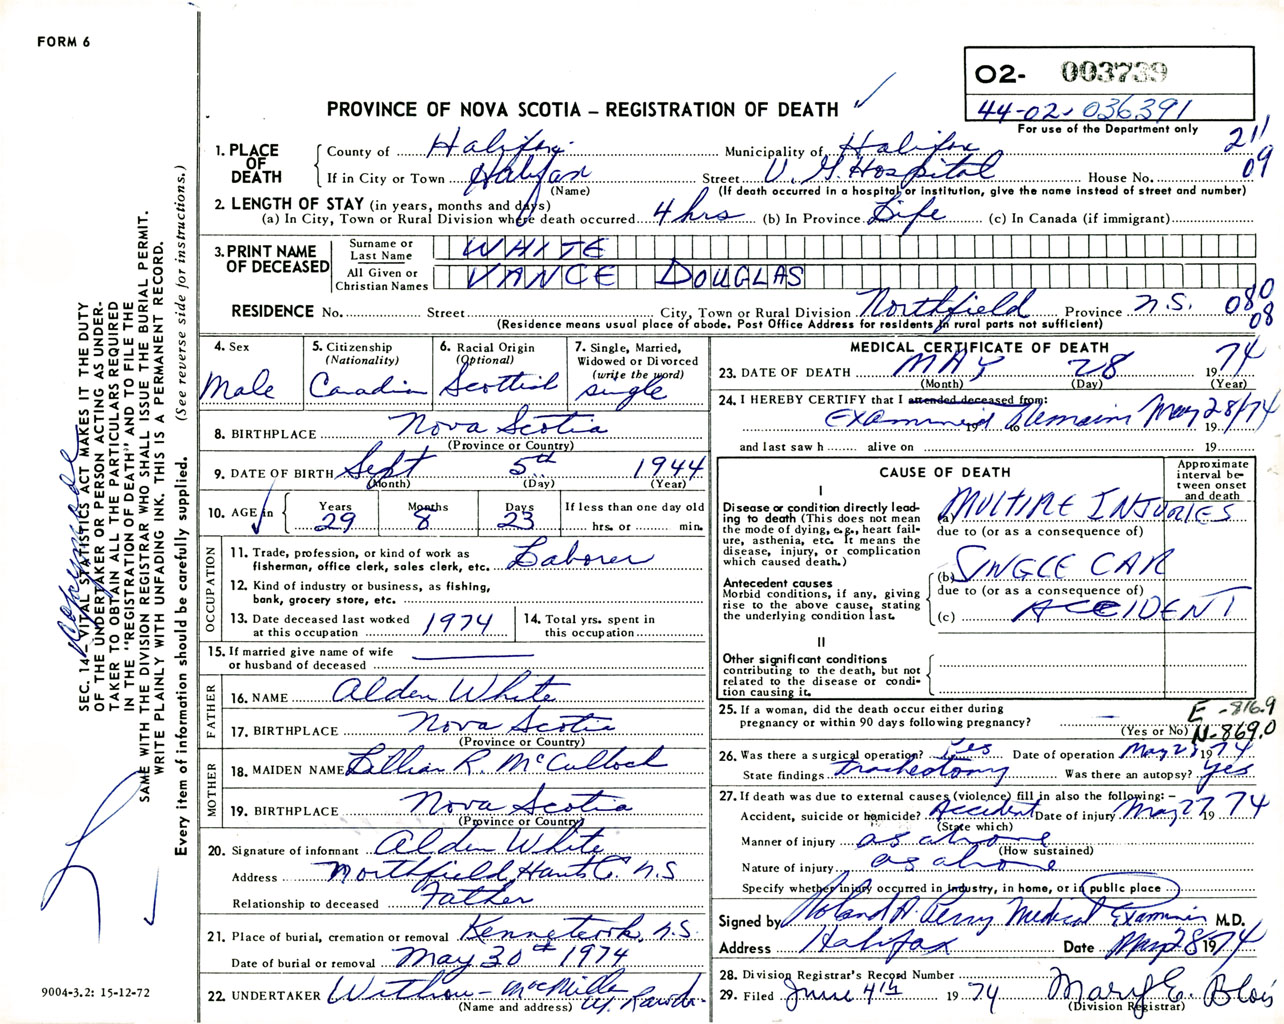 FORM 6
O2- 003739
44-02-036391
For use of the Department only
PROVINCE OF NOVA SCOTIA – REGISTRATION OF DEATH
211
09
1. PLACE OF DEATH
County of Halifax Municipality of Halifax
If in City or Town Halifax Street V. G. Hospital House No.
(Name) (If death occurred in a hospital or institution, give the name instead of street and number)
2. LENGTH OF STAY (in years, months and days)
(a) In City, Town or Rural Division where death occurred 4 hrs (b) In Province Life (c) In Canada (if immigrant)
3. PRINT NAME OF DECEASED
Surname or Last Name WHITE
All Given or Christian Names VANCE DOUGLAS
RESIDENCE No. Street City, Town or Rural Division Northfield Province N.S. 080
08
(Residence means usual place of abode. Post Office Address for residents in rural parts not sufficient)
4. Sex
Male
5. Citizenship
(Nationality)
Canadian
6. Racial Origin
(Optional)
Scottish
7. Single, Married,
Widowed or Divorced
(write the word)
single
8. BIRTHPLACE Nova Scotia
(Province or Country)
9. DATE OF BIRTH Sept 5th 1944
(Month) (Day) (Year)
10. AGE in Years Months Days If less than one day old
29 8 23 hrs. or min.
OCCUPATION
11. Trade, profession, or kind of work as
fisherman, office clerk, sales clerk, etc. Laborer
12. Kind of industry or business, as fishing,
bank, grocery store, etc.
13. Date deceased last worked
at this occupation 1974
14. Total yrs. spent in
this occupation
15. If married give name of wife
or husband of deceased
FATHER
16. NAME Alden White
17. BIRTHPLACE Nova Scotia
(Province or Country)
MOTHER
18. MAIDEN NAME Lillian R. McCulloch
19. BIRTHPLACE Nova Scotia
(Province or Country)
20. Signature of informant Alden White
Address Northfield, Hants Co. N.S
Relationship to deceased Father
21. Place of burial, cremation or removal Kennetcook, N.S.
Date of burial or removal May 30th 1974
22. UNDERTAKER
(Name and address)
MEDICAL CERTIFICATE OF DEATH
23. DATE OF DEATH MAY 28 1974
(Month) (Day) (Year)
24. I HEREBY CERTIFY that I attended deceased from:
Examined Remains May 28/74
19 to 19
and last saw h alive on 19
CAUSE OF DEATH
Approximate interval between onset and death
I
Disease or condition directly leading to death (This does not mean the mode of dying, e.g., heart failure, asthenia, etc. It means the disease, injury, or complication which caused death.)
(a) MULTIPLE INJURIES
due to (or as a consequence of)
Antecedent causes
Morbid conditions, if any, giving rise to the above cause, stating the underlying condition last.
(b) SINGLE CAR
due to (or as a consequence of)
(c) ACCIDENT
II
Other significant conditions
contributing to the death, but not related to the disease or condition causing it.
25. If a woman, did the death occur either during
pregnancy or within 90 days following pregnancy?
(Yes or No)
E-816.9
N-869.0
26. Was there a surgical operation? Yes Date of operation May 28 1974
State findings tracheotomy Was there an autopsy? Yes
27. If death was due to external causes (violence) fill in also the following: –
Accident, suicide or homicide? Accident Date of injury May 27 1974
(State which)
Manner of injury as above
(How sustained)
Nature of injury as above
Specify whether injury occurred in industry, in home, or in public place
Signed by Roland A. Perry Medical Examiner M.D.
Address Halifax Date May 28 1974
28. Division Registrar's Record Number
29. Filed June 4th 1974 Mary E. Blois
(Division Registrar)
SEC. 14 – VITAL STATISTICS ACT MAKES IT THE DUTY
OF THE UNDERTAKER OR PERSON ACTING AS UNDER-
TAKER TO OBTAIN ALL THE PARTICULARS REQUIRED
IN THE "REGISTRATION OF DEATH" AND TO FILE THE
SAME WITH THE DIVISION REGISTRAR WHO SHALL ISSUE THE BURIAL PERMIT.
WRITE PLAINLY WITH UNFADING INK. THIS IS A PERMANENT RECORD.
Every item of information should be carefully supplied. (See reverse side for instructions.)
9004-3.2: 15-12-72